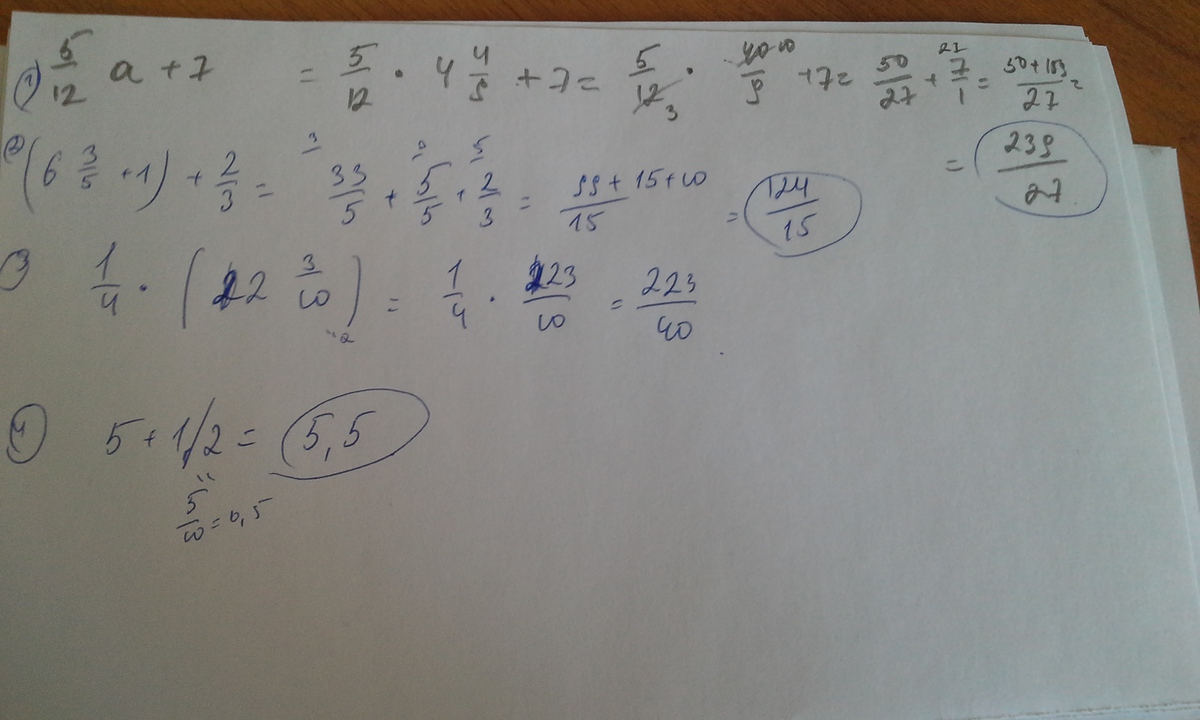 1) 5/12 a + 7 = 5/12 · 4 4/9 + 7 = 5/12 3 · 40 10/9 + 7 = 50/27 + 27 7/1 = 50+189/27 =
= 239/27
2) (6 3/5 + 1) + 2/3 = 3 33/5 + 3 5/5 + 5 2/3 = 99+15+10/15 = 124/15
3) 1/4 · (22 3/10) = 1/4 · 223/10 = 223/40
4) 5 + 1/2 = 5,5
5/10 = 0,5